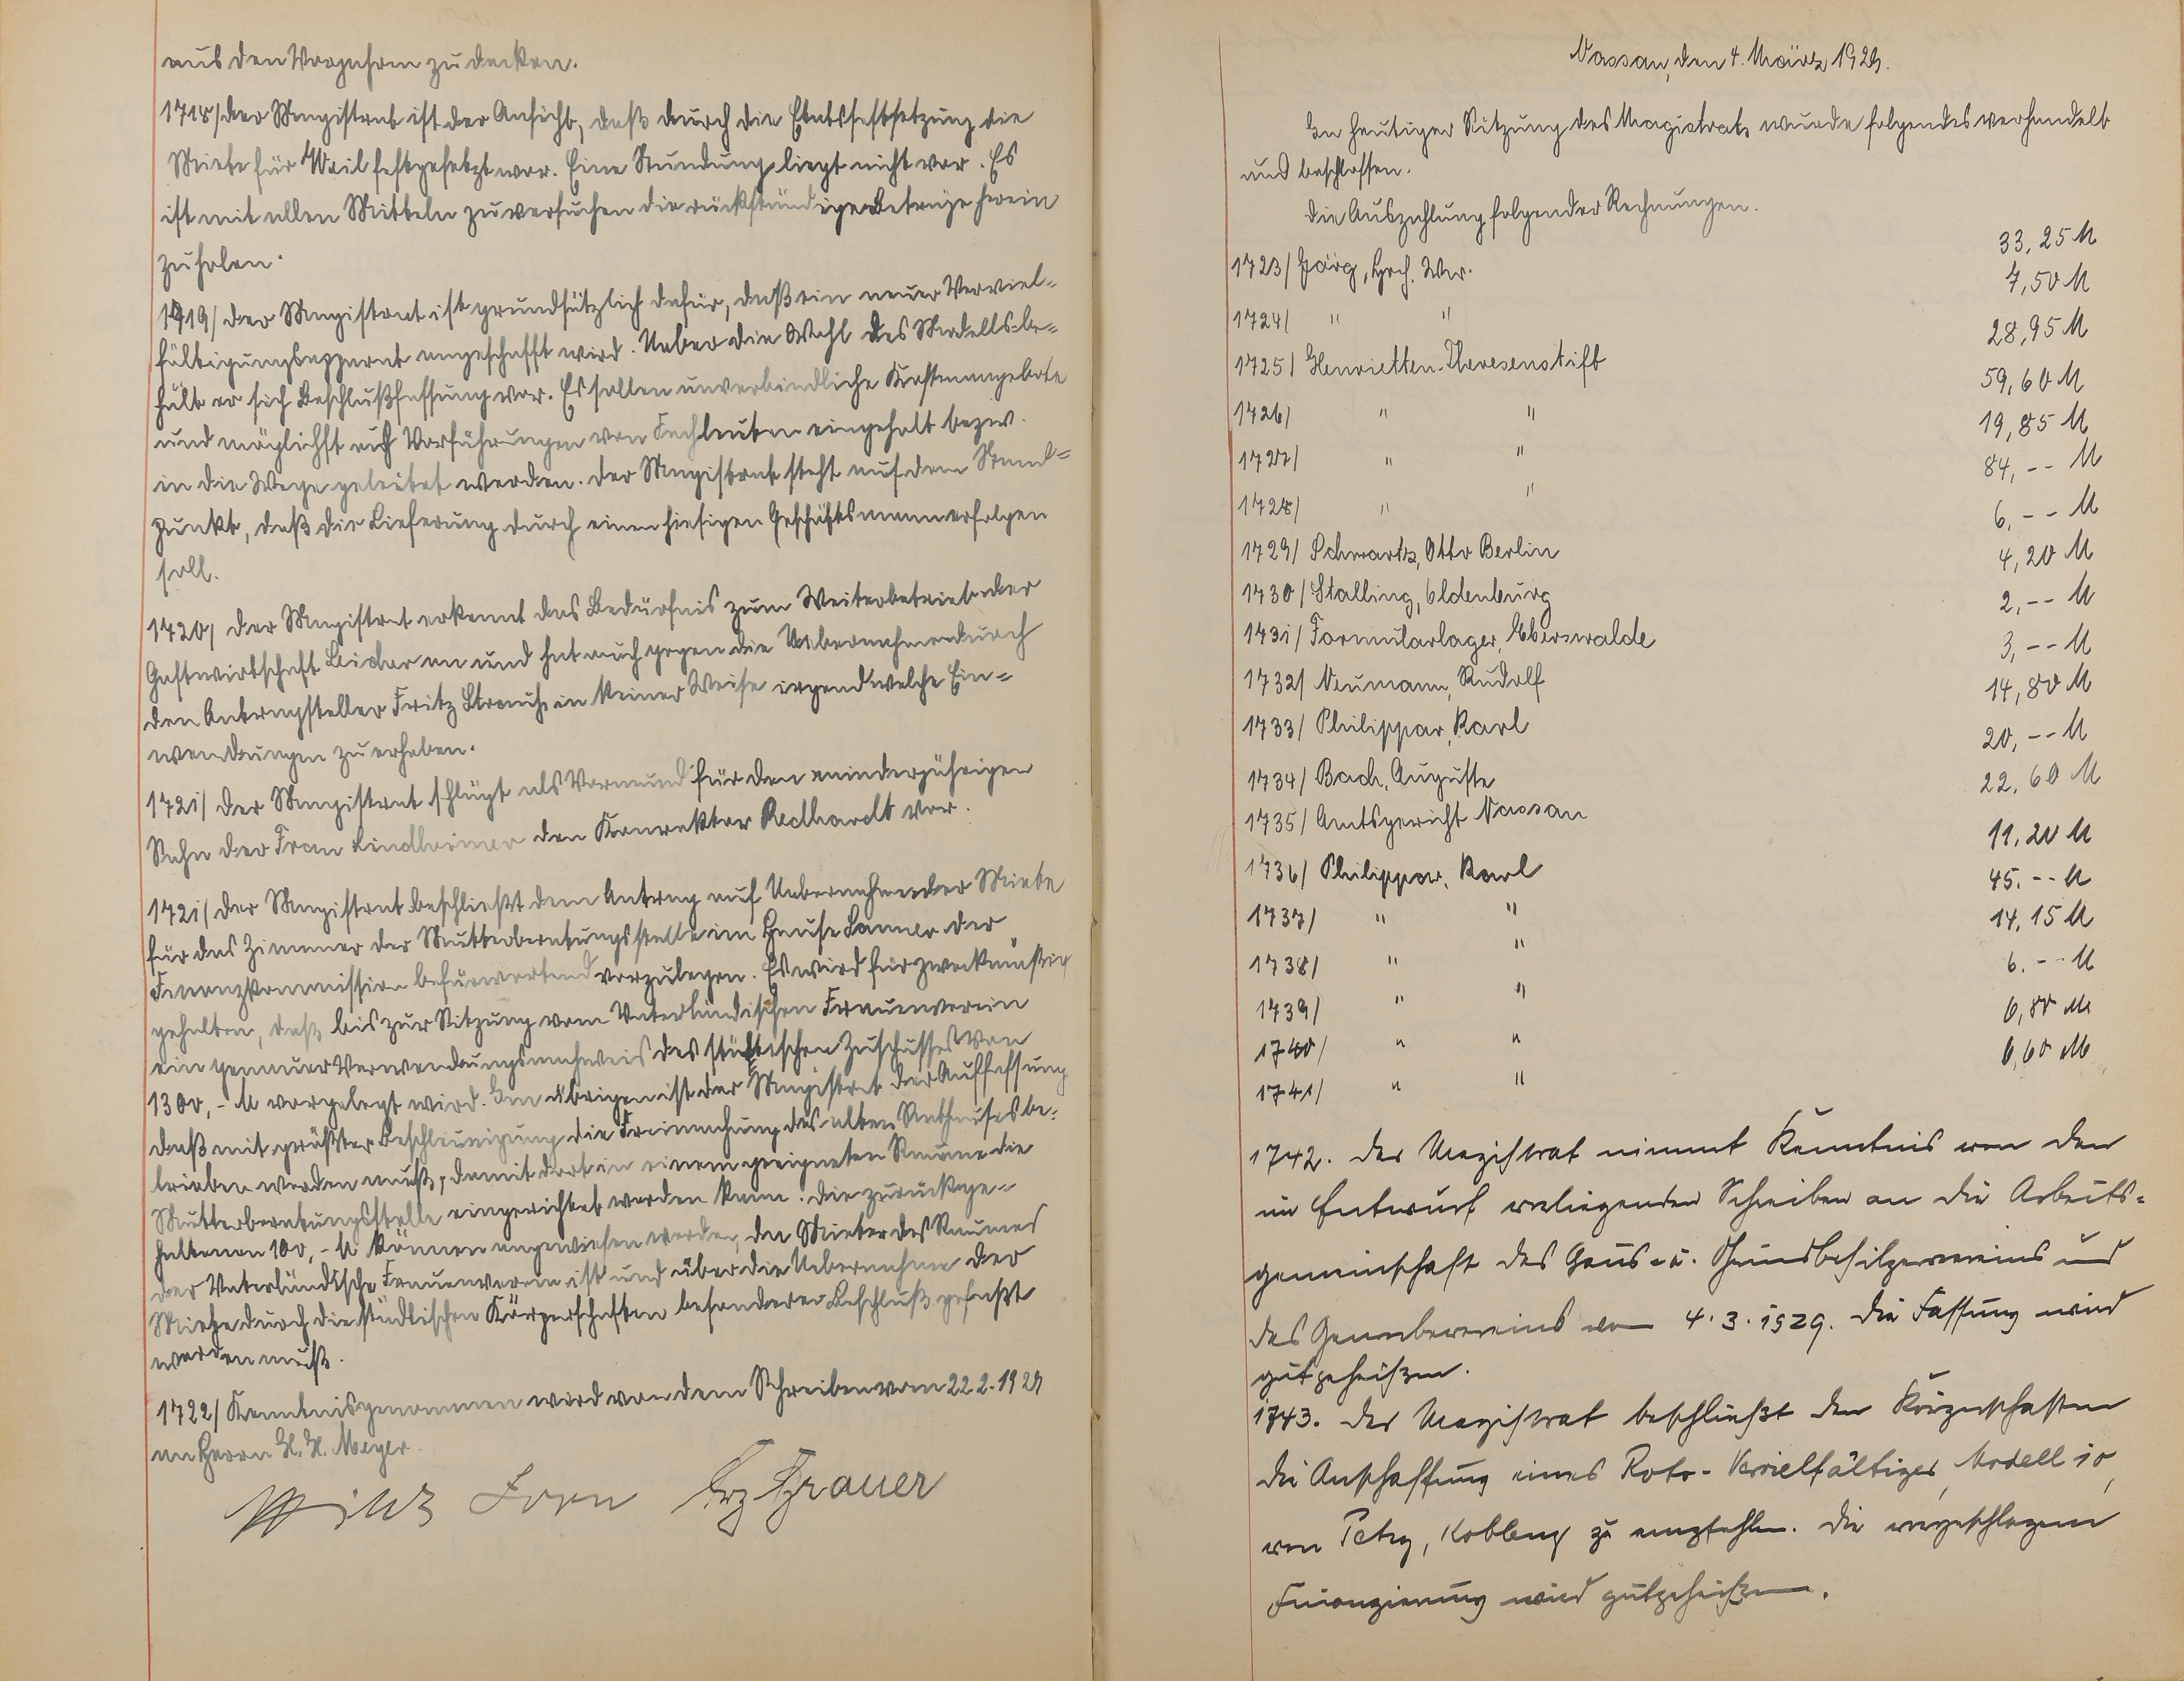 aus den Vorjahren zu decken.
1718/ der Magistrat ist der Ansicht, daß durch die Etatsfestsetzung die
Miete für Weil festgesetzt war. Eine Stundung liegt nicht vor. Es
ist mit allen Mitteln zu versuchen die rückständigen Beträge herein
zu holen.
1719/ der Magistrat ist grundsätzlich dafür, daß ein neuer Verviel-
fältigungsapparat angeschafft wird. Ueber die Wahl des Modells be-
hält er sich Beschlußfassung vor. Es sollen unverbindliche Kostenangebote
und möglichst auch Vorführungen von Fachleuten eingeholt bezw.
in die Wege geleitet werden. Der Magistrat steht auf dem Stand-
punkt, daß die Lieferung durch einen hiesigen Geschäftsmann erfolgen
soll.
1720/ der Magistrat erkennt das Bedürfnis zum Weiterbetrieb der
Gastwirtschaft an und hat auch gegen die Uebernahme durch
den Antragsteller Fritz Strauch in keiner Weise irgendwelche Ein-
wendungen zu erheben.
1721/ der Magistrat schlägt als Vormund für den minderjährigen
Sohn der Frau Lindheimer den Konrektor Redhardt vor.
1721/ der Magistrat beschließt dem Antrag auf Uebernahme der Miete
für das Zimmer der Mutterberatungsstelle im Hause der
Finanzkommission befürwortend vorzulegen. Es wird für zweckmäßig
gehalten, daß bis zur Sitzung vom Vaterländischen Frauenverein
ein genauer Verwendungsnachweis des städtischen Zuschusses von
1300,- M vorgelegt wird. Im übrigen ist der Magistrat der Auffassung
daß mit größter Beschleunigung die Freimachung des alten Rathauses be-
trieben werden muß, damit dort in einem geeigneten Raume die
Mutterberatungsstelle eingerichtet werden kann. Die zurückge-
haltenen 100,- M können angewiesen werden, da Mieter des Raumes
der Vaterländische Frauenverein ist und über die Uebernahme der
Miete durch die städtischen Körperschaften besonderer Beschluß gefaßt
werden muß.
1722/ Kenntnis genommen wird von dem Schreiben vom 22.2.1929
an Herrn H. H. Meyer.
Lorn Brauer
Nassau, den 4. März 1929.
In heutiger Sitzung des Magistrats wurde folgendes verhandelt
und beschlossen.
Die Auszahlung folgender Rechnungen.
1723/ Jörg, Hrch. Ww. 33,25 M
1724/ " " 7,50 M
1725/ Henrietten-Theresenstift 28,95 M
1726/ " " 59,60 M
1727/ " " 19,85 M
1728/ " " 84,-- M
1729/ Schwartz, Otto Berlin 6,-- M
1730/ Stalling, Oldenburg 4,20 M
1731/ Formularlager, Eberswalde 2,-- M
1732/ Neumann, Rudolf 3,-- M
1733/ Philippar, Karl 14,80 M
1734/ Bach, Auguste 20,-- M
1735/ Amtsgericht Nassau 22,60 M
1736/ Philippar, Karl 11,20 M
1737/ " " 45.-- M
1738/ " " 14,15 M
1739/ " " 6.-- M
1740/ " " 6,80 M
1741/ " " 6,60 M
1742. Der Magistrat nimmt Kenntnis von dem
im Entwurf vorliegenden Schreiben an die Arbeits-
gemeinschaft des Haus- u. Grundbesitzervereins und
des Gewerbevereins vom 4.3.1929. Die Fassung wird
gutgeheißen.
1743. Der Magistrat beschließt den Körperschaften
die Anschaffung eines Roto-Vervielfältiger, Modell 10,
von Petry, Koblenz zu empfehlen. Die vorgeschlagene
Finanzierung wird gutgeheißen.